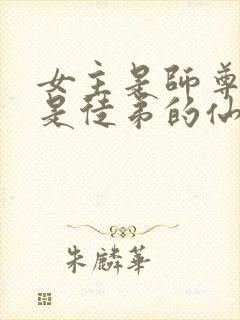 女主是師尊
是徒弟的仙
朱麟華